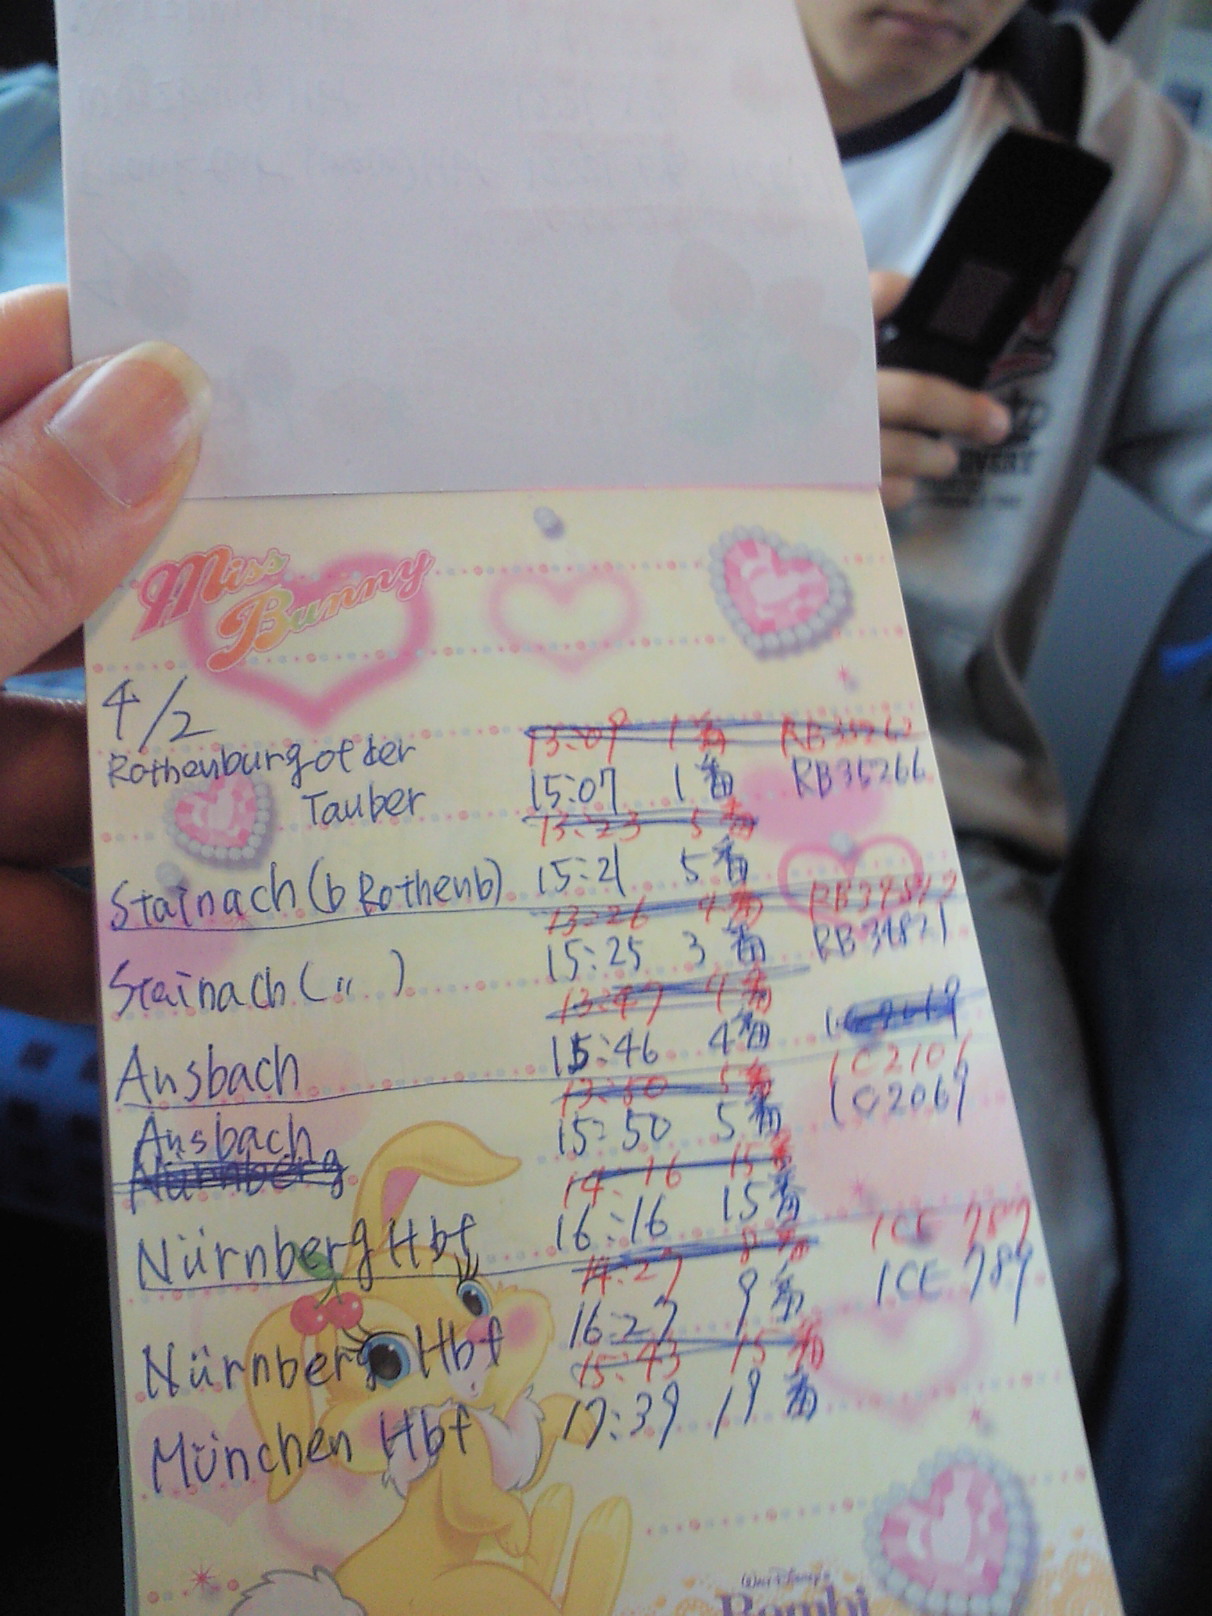 Miss
Bunny
4/2
13:09 1番 RB35262
Rothenburg ot der
Tauber 15:07 1番 RB35266
13:23 5番
Stainach (b Rothenb) 15:21 5番
13:26 4番
Stainach ( 〃 ) 15:25 3番 RB34821
13:47 4番
Ansbach 15:46 4番
13:50 5番 IC2106
Ansbach 15:50 5番 IC2069
Nürnberg
14:16 15番
Nürnberg Hbf 16:16 15番
14:27 8番 ICE 787
Nürnberg Hbf 16:27 9番 ICE 789
15:43 15番
München Hbf 17:39 19番
Walt Disney's
Bambi